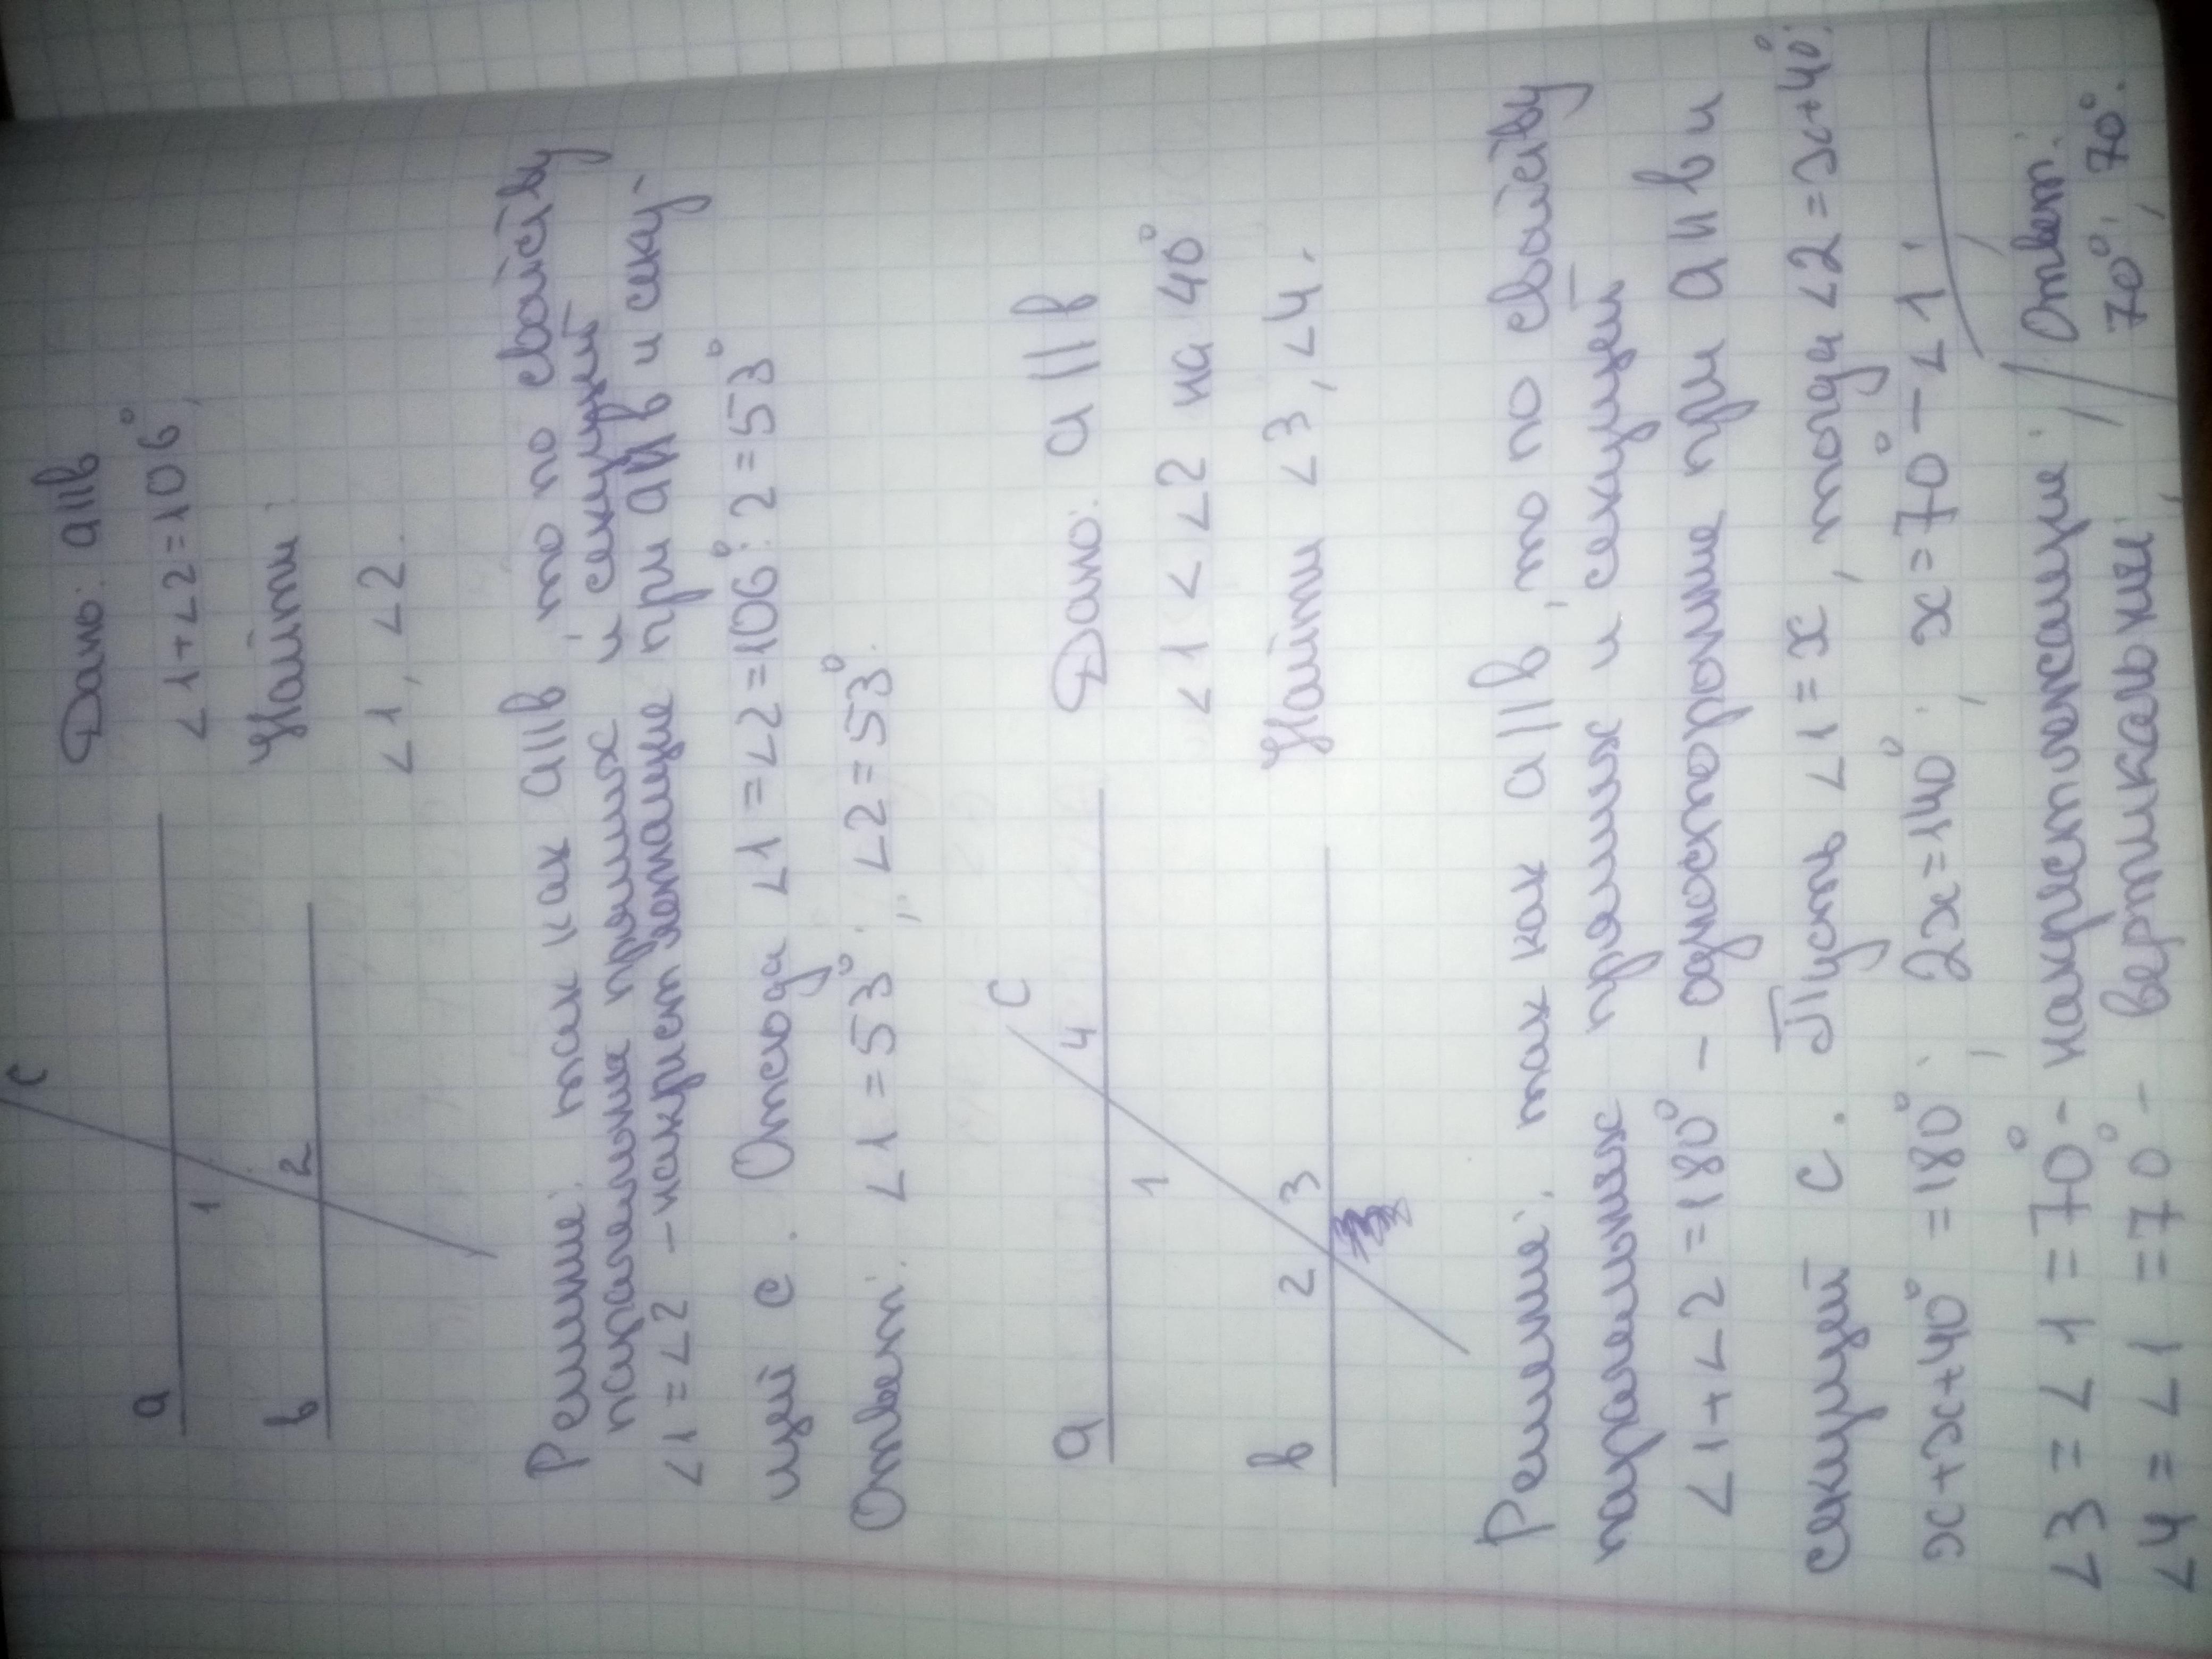 с
а
1
2
в
Дано: а||в
∠1+∠2=106°,
Найти:
∠1, ∠2.
Решение: так как а||в, то по свойству
паралельных прямых и секущей
∠1=∠2 - накрест лежащие при а||в и секу-
щей с. Отсюда ∠1=∠2=106°:2=53°
Ответ: ∠1=53°; ∠2=53°.
с
4
а
1
2 3
в
Дано: а||в
∠1<∠2 на 40°
Найти ∠3, ∠4.
Решение: так как а||в, то по свойству
паралельных прямых и секущей
∠1+∠2=180° - односторонние при а||в и
секущей с. Пусть ∠1=x, тогда ∠2=x+40°.
x+x+40°=180°; 2x=140°; x=70° - ∠1.
∠3=∠1=70° - накрестлежащие; // Ответ:
∠4=∠1=70° - вертикальные, 70°, 70°.